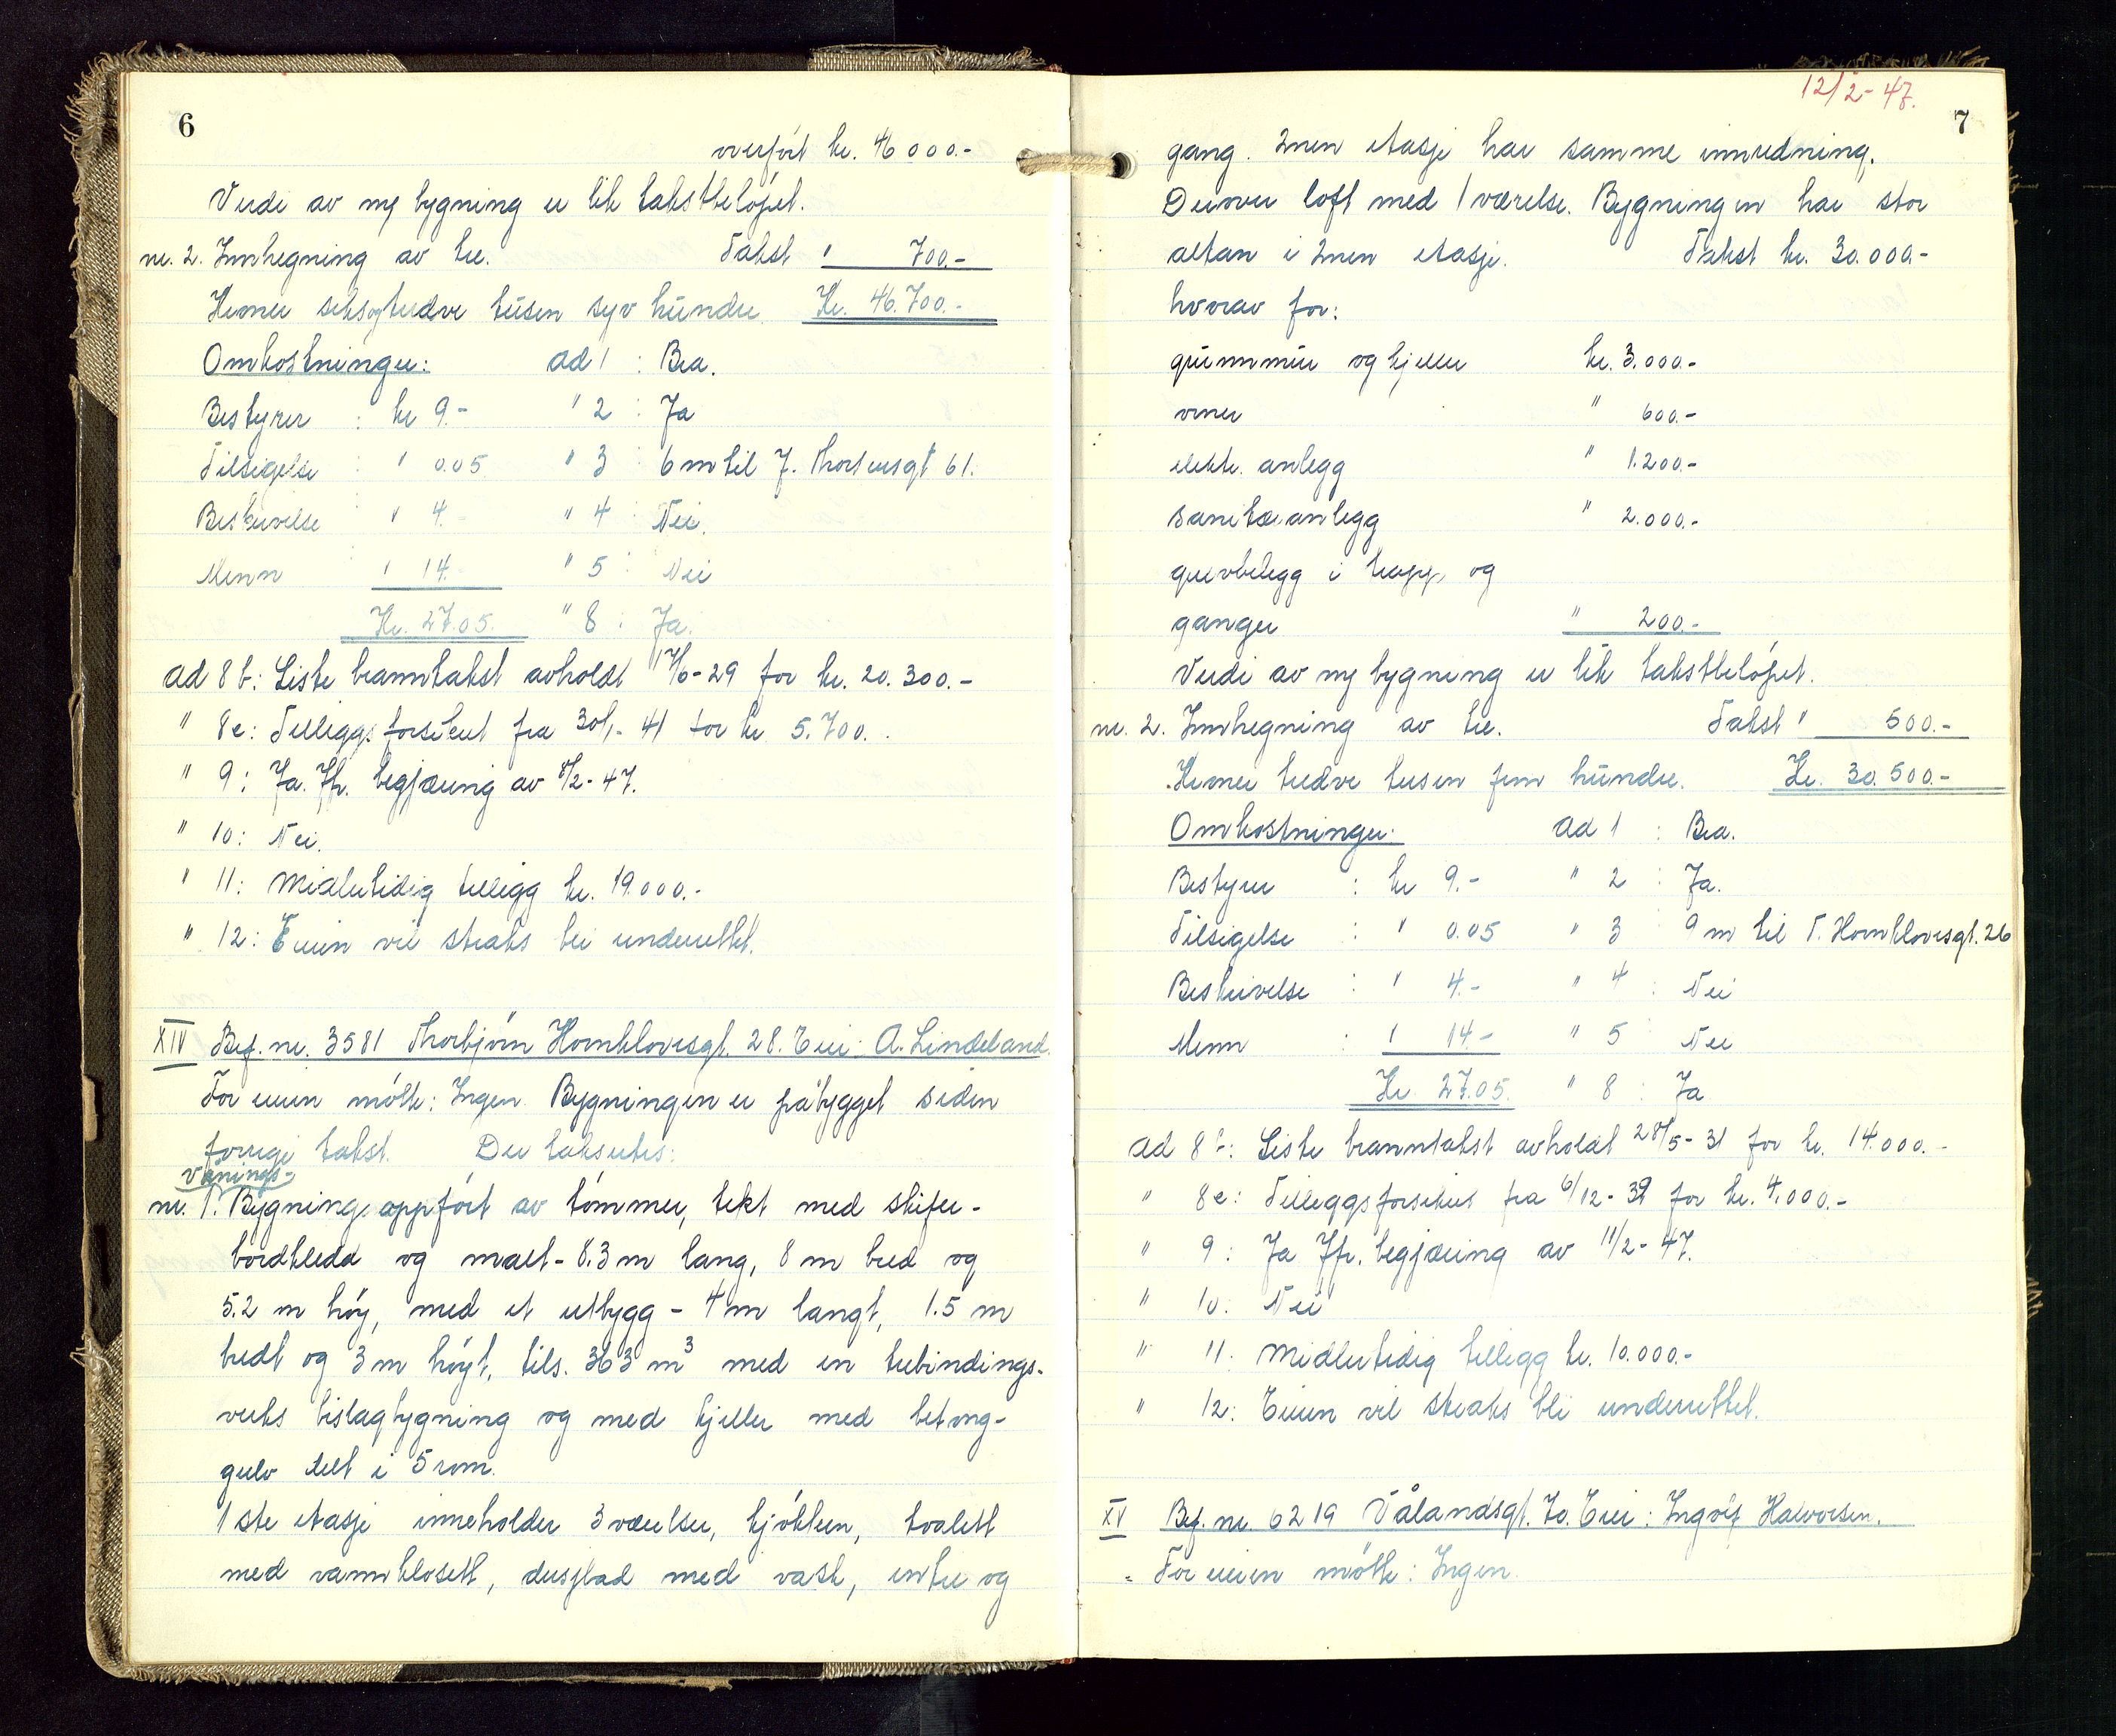 6
overført kr. 46000.-
Verdi av ny bygning er lik takstbeløpet.
nr. 2. Innhegning av tre. Takst " 700.-
Kroner seksogtredve tusen syv hundre. Kr. 46.700.-
Omkostninger: ad 1 : Bra.
Bestyrer : kr 9.- " 2 : Ja
Tilsigelse : " 0.05 " 3 : 6 m til J. Thorsensgt 61.
Beskrivelse : " 4.- " 4 : Nei.
Menn : " 14.- " 5 : Nei
Kr. 27.05. " 8 : Ja.
ad 8 b: Siste branntakst avholdt 17/6-29 for kr. 20.300.-
" 8c: Tilleggsforsikret fra 30/1-41 for kr 5.700.-
" 9: Ja. Jfr. begjæring av 8/2-47.
" 10: Nei.
" 11: Midlertidig tillegg kr. 19.000.-
" 12: Eieren vil straks bli underrettet.
XIV Bef. nr. 3581 Thorbjørn Hornklovesgt. 28. Eier: A. Lindeland.
For eieren møtte: Ingen. Bygningen er påbygget siden
forrige takst. Der takseres:
Vånings-
nr. 1. Bygning oppført av tømmer, tekt med skifer -
bordkledd og malt - 8.3 m lang, 8 m bred og
5.2 m høy, med et utbygg - 4 m langt, 1.5 m
bredt og 3 m høyt, tils. 363 m3 med en trebindings-
verks bislagbygning og med kjeller med betong-
gulv delt i 5 rom.
1ste etasje inneholder 3 værelser, kjøkken, toalett
med vannklosett, dusjbad med vask, entre og
12/2-47.
7
gang. 2nen etasje har samme innredning.
Derover loft med 1 værelse. Bygningen har stor
altan i 2nen etasje. Takst kr. 30.000.-
hvorav for:
grunnmur og kjeller kr. 3.000.-
ovner " 600.-
elektr. anlegg " 1.200.-
sanitæranlegg " 2.000.-
gulvbelegg i trapp og
ganger " 200.-
Verdi av ny bygning er lik takstbeløpet.
nr. 2. Innhegning av tre. Takst " 500.-
Kroner tredve tusen fem hundre. Kr. 30.500.-
Omkostninger: ad 1 : Bra.
Bestyrer : kr 9.- " 2 : Ja.
Tilsigelse : " 0.05 " 3 9 m til T. Hornklovesgt. 26
Beskrivelse : " 4.- " 4 : Nei
Menn : " 14.- " 5 Nei
Kr. 27.05. " 8 : Ja
ad 8 b: Siste branntakst avholdt 28/5-31 for kr. 14.000.-
" 8c: Tilleggsforsikret fra 6/12-39 for kr. 4.000.-
" 9: Ja Jfr. begjæring av 11/2-47.
" 10: Nei
" 11: Midlertidig tillegg kr. 10.000.-
" 12: Eieren vil straks bli underrettet.
XV Bef. nr. 6219 Vålandsgt. 70. Eier: Ingolf Halvorsen.
For eieren møtte: Ingen.